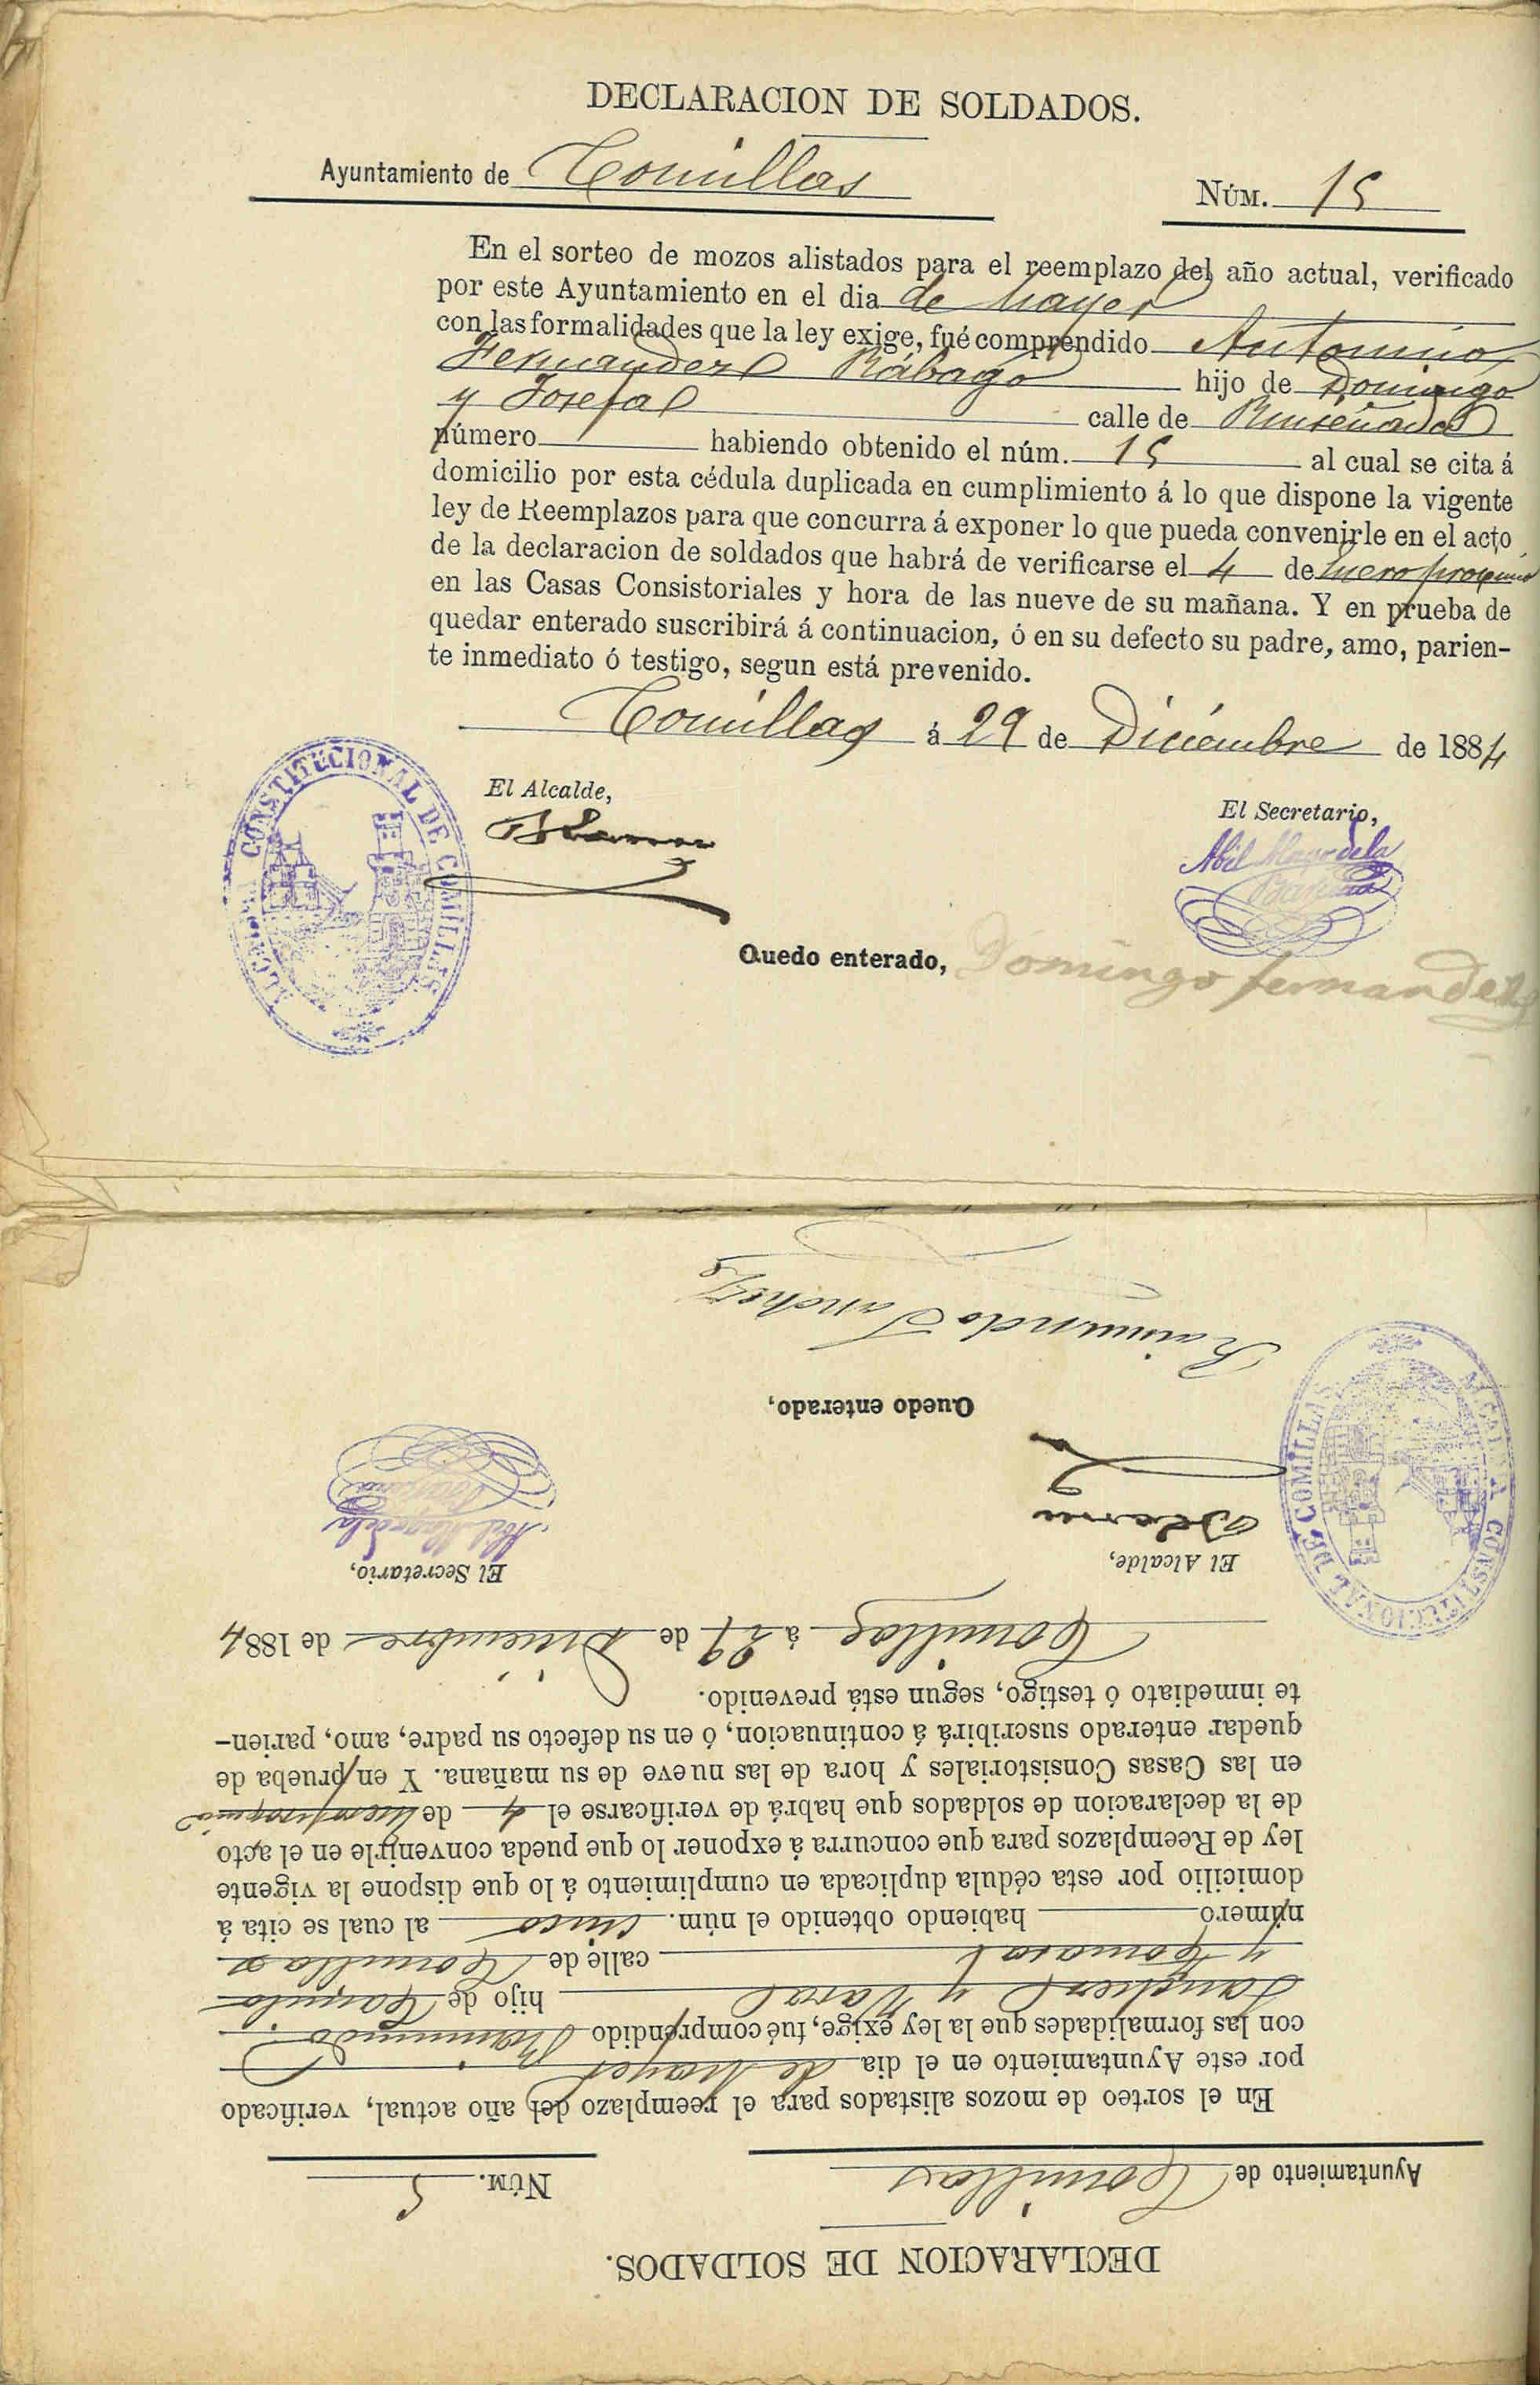 DECLARACION DE SOLDADOS.
Ayuntamiento de Comillas
NÚM. 15
En el sorteo de mozos alistados para el reemplazo del año actual, verificado
por este Ayuntamiento en el dia de hayer
con las formalidades que la ley exige, fué comprendido Antonino
Fernandez Rábago hijo de Domingo
y Josefa calle de Ruiseñada
número habiendo obtenido el núm. 15 al cual se cita á
domicilio por esta cédula duplicada en cumplimiento á lo que dispone la vigente
ley de Reemplazos para que concurra á exponer lo que pueda convenirle en el acto
de la declaracion de soldados que habrá de verificarse el 4 de Enero proximo
en las Casas Consistoriales y hora de las nueve de su mañana. Y en prueba de
quedar enterado suscribirá á continuacion, ó en su defecto su padre, amo, parien-
te inmediato ó testigo, segun está prevenido.
Comillas á 29 de Diciembre de 1884
El Alcalde,
El Secretario,
CONSTITUCIONAL DE COMILLAS
Quedo enterado, Domingo fernandez
DECLARACION DE SOLDADOS.
Ayuntamiento de Comillas
NÚM. 5
En el sorteo de mozos alistados para el reemplazo del año actual, verificado
por este Ayuntamiento en el dia de hayer
con las formalidades que la ley exige, fué comprendido Raimundo
Sanchez y hijo de
y calle de Comillas
número habiendo obtenido el núm. cinco al cual se cita á
domicilio por esta cédula duplicada en cumplimiento á lo que dispone la vigente
ley de Reemplazos para que concurra á exponer lo que pueda convenirle en el acto
de la declaracion de soldados que habrá de verificarse el 4 de Enero proximo
en las Casas Consistoriales y hora de las nueve de su mañana. Y en prueba de
quedar enterado suscribirá á continuacion, ó en su defecto su padre, amo, parien-
te inmediato ó testigo, segun está prevenido.
Comillas á 29 de Diciembre de 1884
El Alcalde,
El Secretario,
ALCALDIA CONSTITUCIONAL DE COMILLAS
Quedo enterado,
Raimundo Sanchez